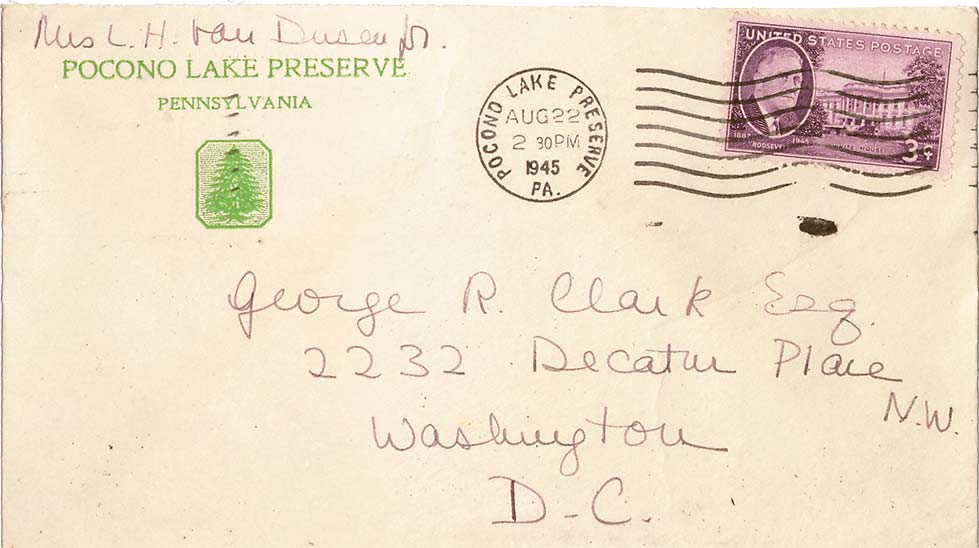 Mrs L. H. Van Dusen Jr.
POCONO LAKE PRESERVE
PENNSYLVANIA
POCONO LAKE PRESERVE
AUG 22
2 30 PM
1945
PA.
UNITED STATES POSTAGE
1882 1945
ROOSEVELT WHITE HOUSE
3¢
George R. Clark Esq.
2232 Decatur Place
N.W.
Washington
D-C.